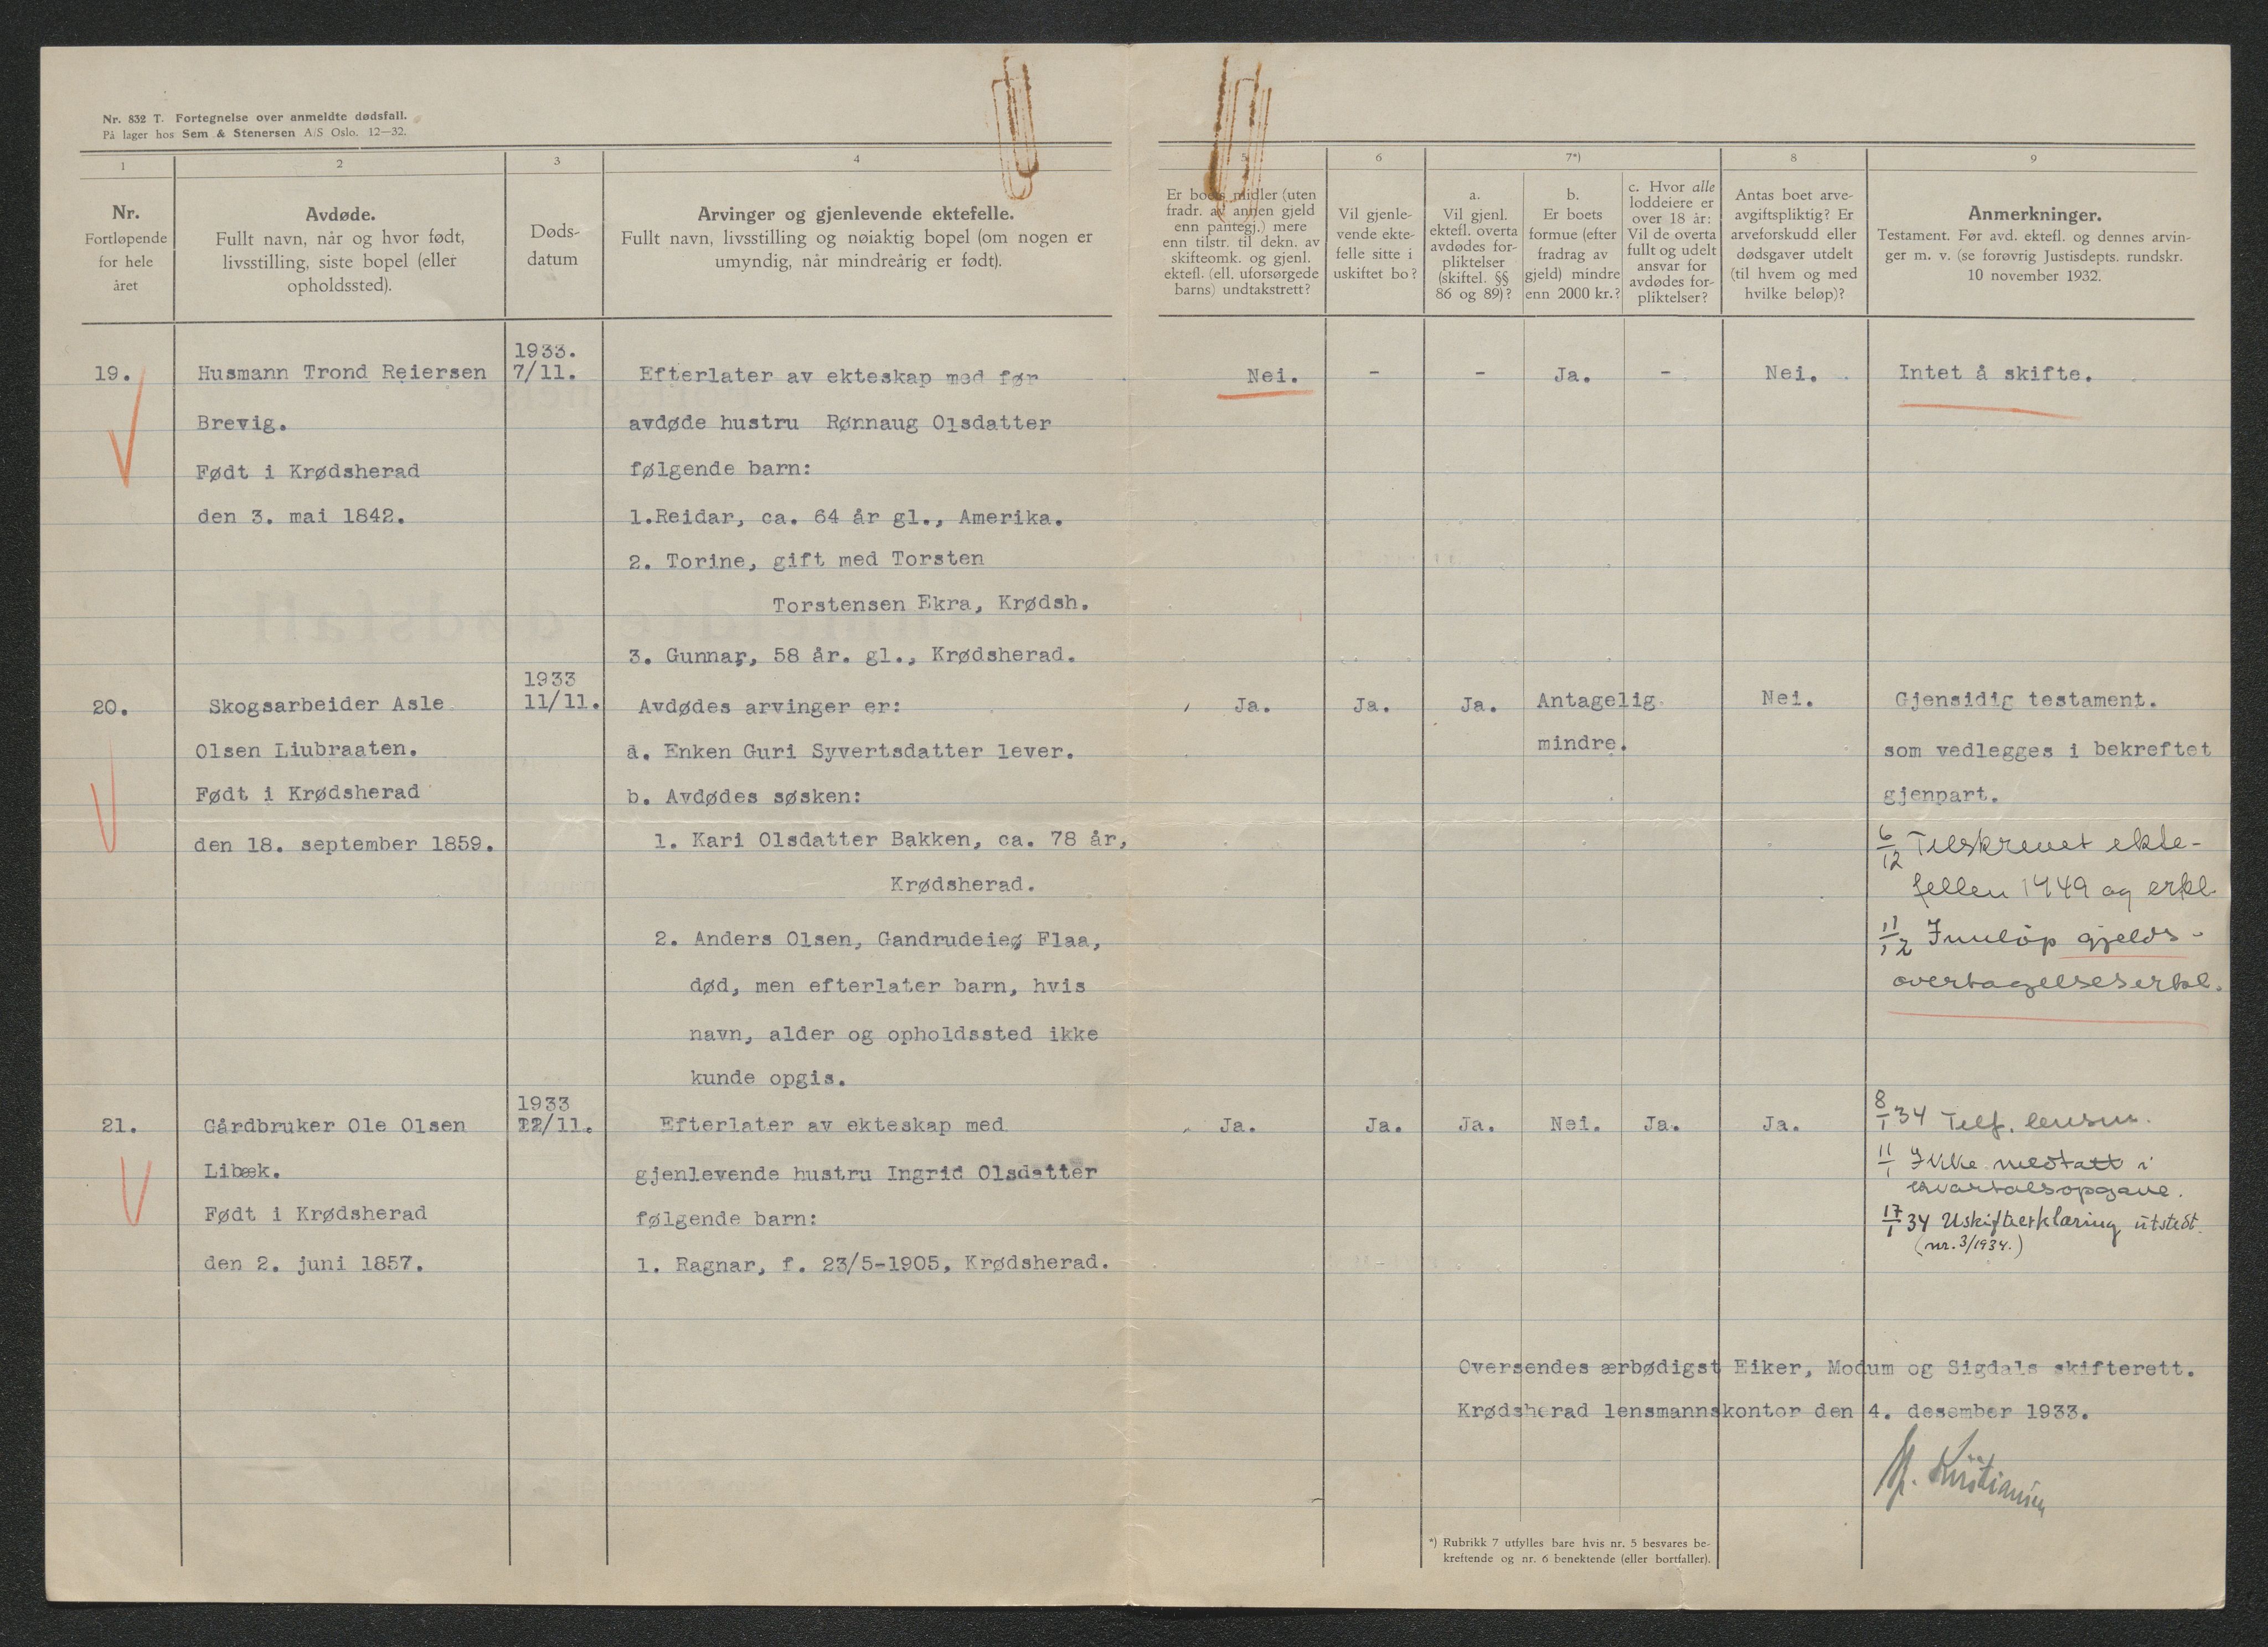 Nr. 832 T. Fortegnelse over anmeldte dødsfall.
På lager hos Sem & Stenersen A/S Oslo. 12—32.
1
2
3
4
5
6
7*)
8
9
Nr.
Fortløpende
for hele
året
Avdøde.
Fullt navn, når og hvor født,
livsstilling, siste bopel (eller
opholdssted).
Døds-
datum
Arvinger og gjenlevende ektefelle.
Fullt navn, livsstilling og nøiaktig bopel (om nogen er
umyndig, når mindreårig er født).
Er boets midler (uten
fradr. av annen gjeld
enn pantegj.) mere
enn tilstr. til dekn. av
skifteomk. og gjenl.
ektefl. (ell. uforsørgede
barns) undtakstrett?
Vil gjenle-
vende ekte-
felle sitte i
uskiftet bo?
a.
Vil gjenl.
ektefl. overta
avdødes for-
pliktelser
(skiftel. §§
86 og 89)?
b.
Er boets
formue (efter
fradrag av
gjeld) mindre
enn 2000 kr.?
c. Hvor alle
loddeiere er
over 18 år:
Vil de overta
fullt og udelt
ansvar for
avdødes for-
pliktelser?
Antas boet arve-
avgiftspliktig? Er
arveforskudd eller
dødsgaver utdelt
(til hvem og med
hvilke beløp)?
Anmerkninger.
Testament. Før avd. ektefl. og dennes arvin-
ger m. v. (se forøvrig Justisdepts. rundskr.
10 november 1932.
19.
Husmann Trond Reiersen
Brevig.
Født i Krødsherad
den 3. mai 1842.
1933.
7/11.
Efterlater av ekteskap med før
avdøde hustru Rønnaug Olsdatter
følgende barn:
1.Reidar, ca. 64 år gl., Amerika.
2. Torine, gift med Torsten
Torstensen Ekra, Krødsh.
3. Gunnar, 58 år. gl., Krødsherad.
Nei.
-
-
Ja.
-
Nei.
Intet å skifte.
20.
Skogsarbeider Asle
Olsen Liubraaten.
Født i Krødsherad
den 18. september 1859.
1933
11/11.
Avdødes arvinger er:
a. Enken Guri Syvertsdatter lever.
b. Avdødes søsken:
1. Kari Olsdatter Bakken, ca. 78 år,
Krødsherad.
2. Anders Olsen, Gandrudeieg Flaa,
død, men efterlater barn, hvis
navn, alder og opholdssted ikke
kunde opgis.
Ja.
Ja.
Ja.
Antagelig
mindre.
Nei.
Gjensidig testament.
som vedlegges i bekreftet
gjenpart.
6/12 Tilskrevet ekte-
fellen 1449 og erkl.
11/12 Innløp gjelds-
overtagelseserkl.
21.
Gårdbruker Ole Olsen
Libæk.
Født i Krødsherad
den 2. juni 1857.
1933
22/11.
Efterlater av ekteskap med
gjenlevende hustru Ingrid Olsdatter
følgende barn:
1. Ragnar, f. 23/5-1905, Krødsherad.
Ja.
Ja.
Ja.
Nei.
Ja.
Ja.
8/1 34 Telf. lensm.
11/1 Ikke medtatt i
kvartalsopgave.
17/1 34 Uskifteerklæring utstedt.
(nr. 3/1934.)
Oversendes ærbødigst Eiker, Modum og Sigdals skifterett.
Krødsherad lensmannskontor den 4. desember 1933.
Kristiansen
*) Rubrikk 7 utfylles bare hvis nr. 5 besvares be-
kreftende og nr. 6 benektende (eller bortfaller).